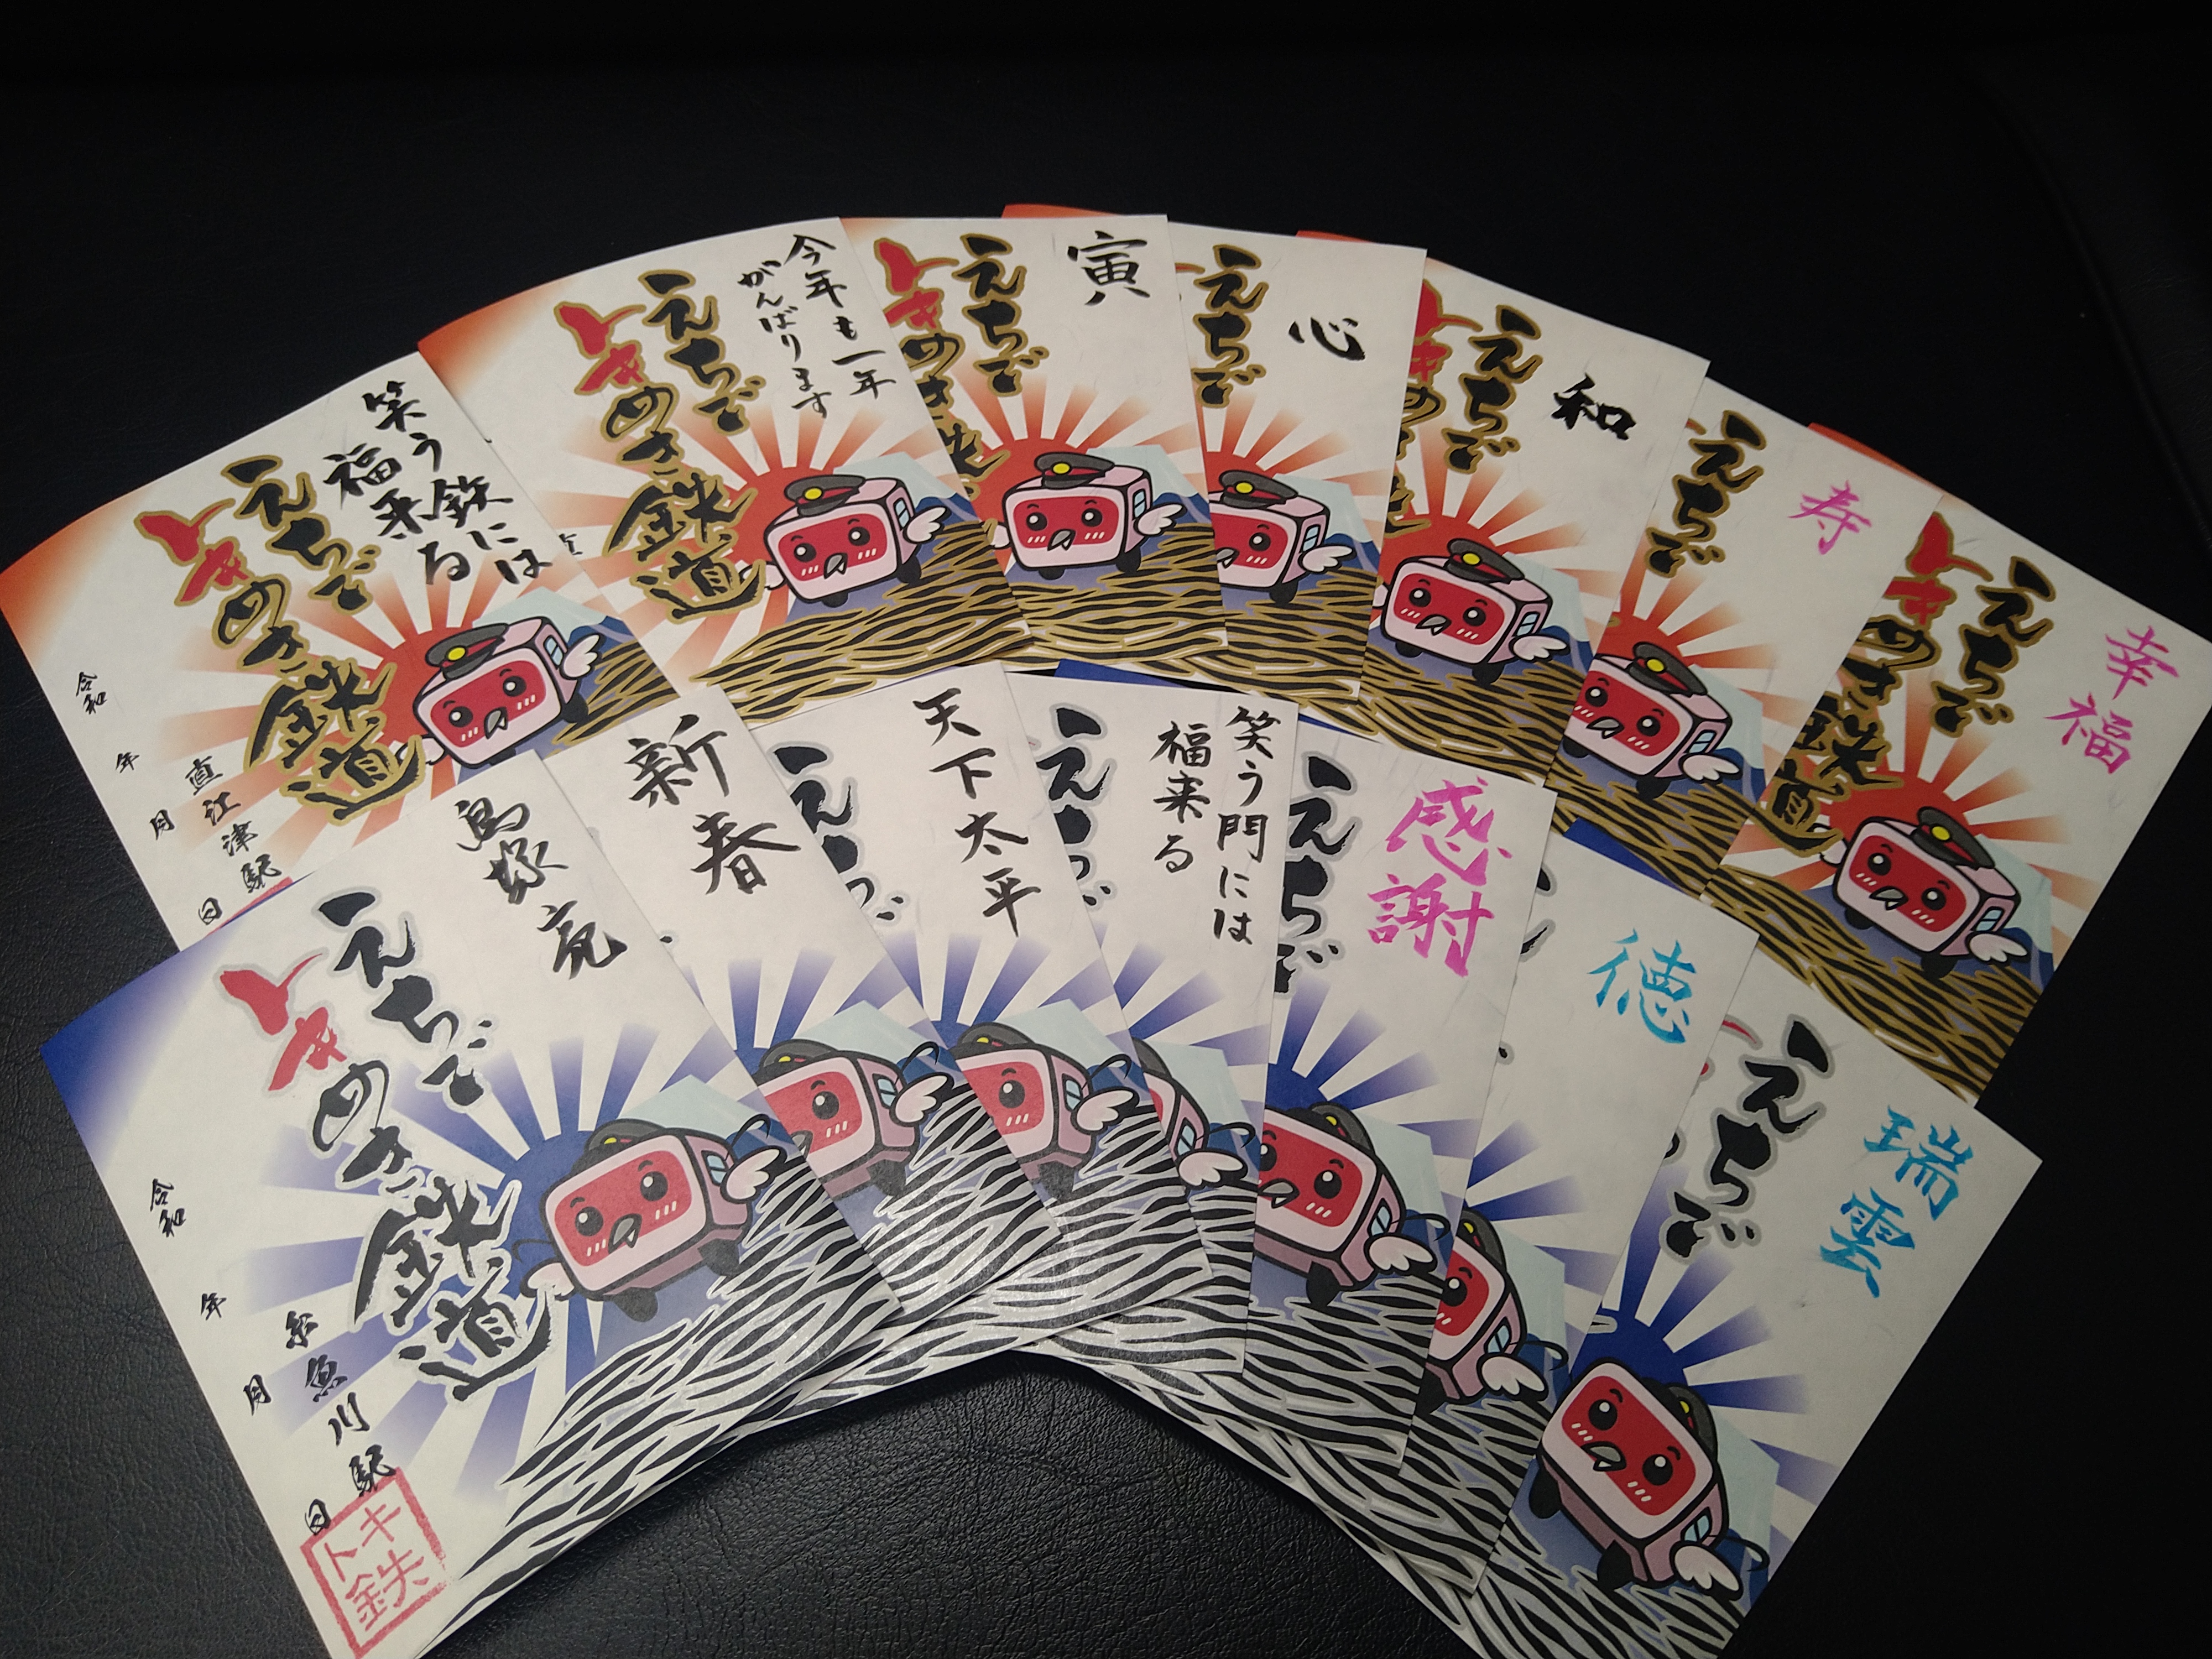 笑う鉄には
福来る
えちご
トキめき鉄道
直江津駅
令和 年 月 日
今年も一年
がんばります
えちご
トキめき鉄道
直
寅
えちご
トキめき鉄
心
えちご
和
えちご
トキめき
寿
えちご
幸福
えちご
トキめき鉄道
鳥塚亮
えちご
トキめき鉄道
糸魚川駅
令和 年 月 日
トキ
鉄
新春
天下太平
えちご
笑う門には
福来る
えち
感謝
えちご
徳
瑞雲
えちご